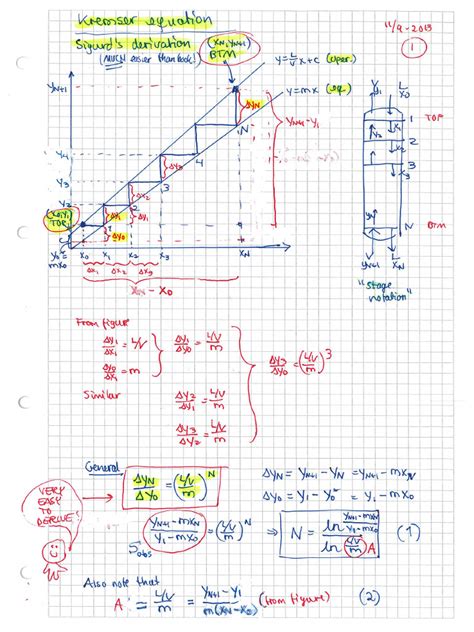 Kremser equation
11/9-2013
1
Sigurd's derivation
(MUCH easier than book!)
(xN, yN+1)
BTM
y = L/V x + c (oper.)
y = mx (eq.)
yN+1
ΔyN
N
yN+1 - y1
y4
4
Δy3
y3
3
Δx2
y2
2
(x0, y1)
TOP
Δy1
Δy1
1
Δy0
c
y0* = mx0
x0 x1 x2 x3 xN
Δx1 Δx2 Δx3
xN - x0
V L
y1 x0
1 TOP
y2 x1
2
y3 x2
3
yN
N BTM
yN+1 xN
"Stage notation"
From figure
Δy1/Δx1 = L/V
Δy1/Δy0 = L/V / m
Δy0/Δx1 = m
Δy3/Δy0 = (L/V / m)^3
Similar
Δy2/Δy1 = L/V / m
Δy3/Δy2 = L/V / m
General
ΔyN/Δy0 = (L/V / m)^N
ΔyN = yN+1 - yN = yN+1 - mxN
Δy0 = y1 - y0* = y1 - mx0
VERY
EASY
TO
DERIVE!
(yN+1 - mxN)/(y1 - mx0) = (L/V / m)^N
⇒ N = ln((yN+1 - mxN)/(y1 - mx0)) / ln(L/V / m) A (1)
Also note that
A = L/V / m = (yN+1 - y1)/(m(xN - x0)) (from figure) (2)